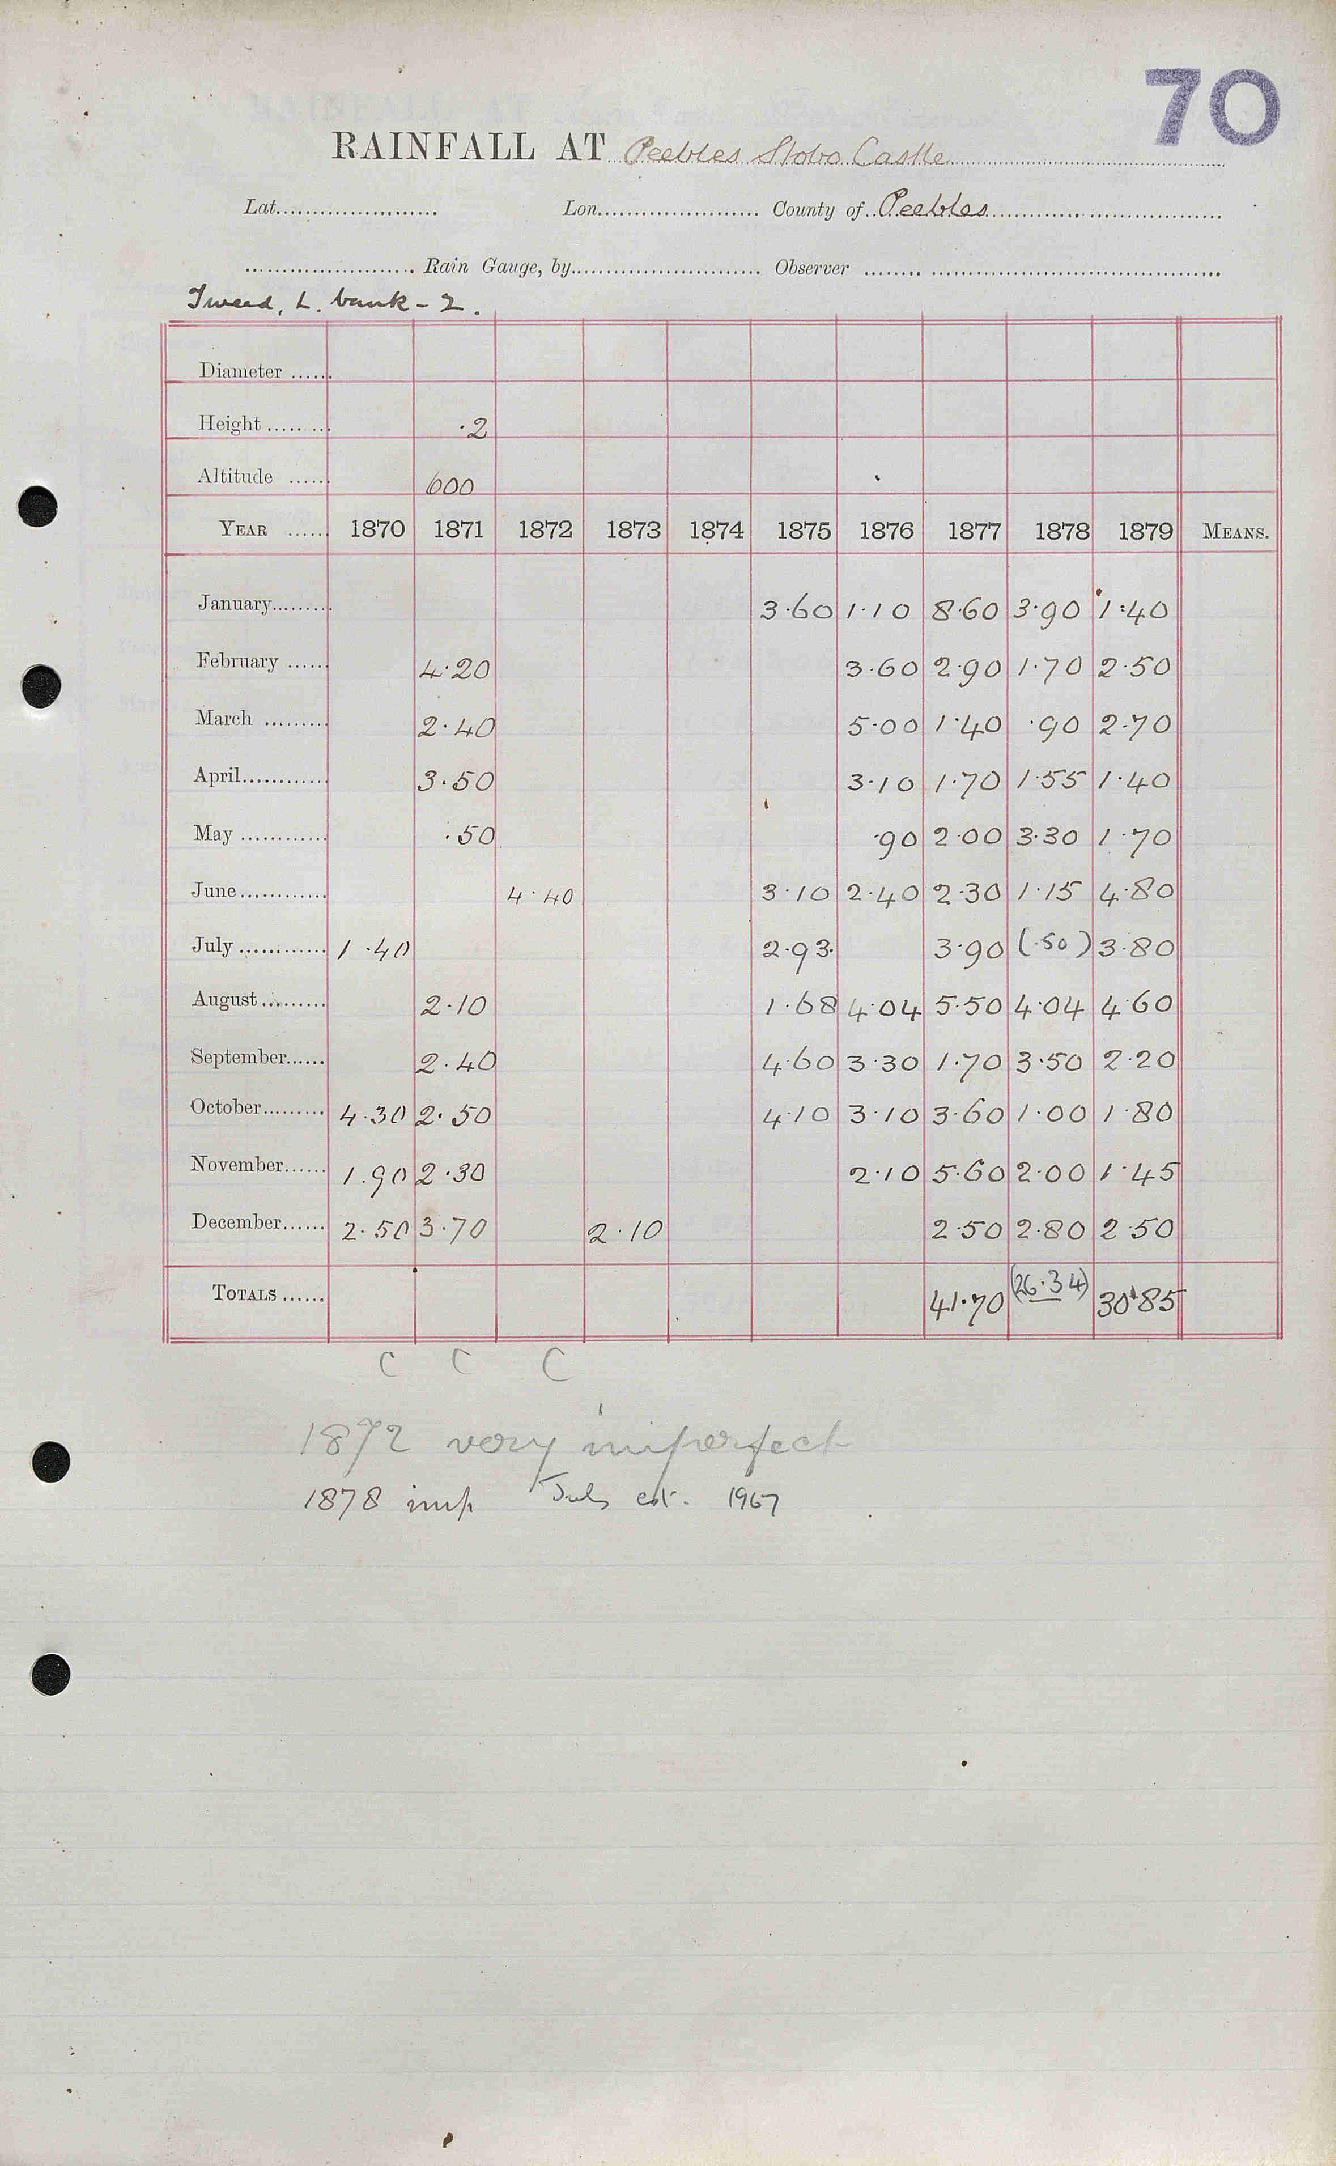 70
RAINFALL AT Peebles Stobo Castle
Lat. Lon. County of Peebles
Rain Gauge, by Observer
Tweed, L. bank - 2.
Diameter
Height ·2
Altitude 600
YEAR 1870 1871 1872 1873 1874 1875 1876 1877 1878 1879 MEANS.
January 3·60 1·10 8·60 3·90 1·40
February 4·20 3·60 2·90 1·70 2·50
March 2·40 5·00 1·40 ·90 2·70
April 3·50 3·10 1·70 1·55 1·40
May ·50 ·90 2·00 3·30 1·70
June 4·40 3·10 2·40 2·30 1·15 4·80
July 1·40 2·93 3·90 (·50) 3·80
August 2·10 1·68 4·04 5·50 4·04 4·60
September 2·40 4·60 3·30 1·70 3·50 2·20
October 4·30 2·50 4·10 3·10 3·60 1·00 1·80
November 1·90 2·30 2·10 5·60 2·00 1·45
December 2·50 3·70 2·10 2·50 2·80 2·50
TOTALS 41·70 (26·34) 30·85
C C C
1872 very imperfect
1878 imp July est. 1967